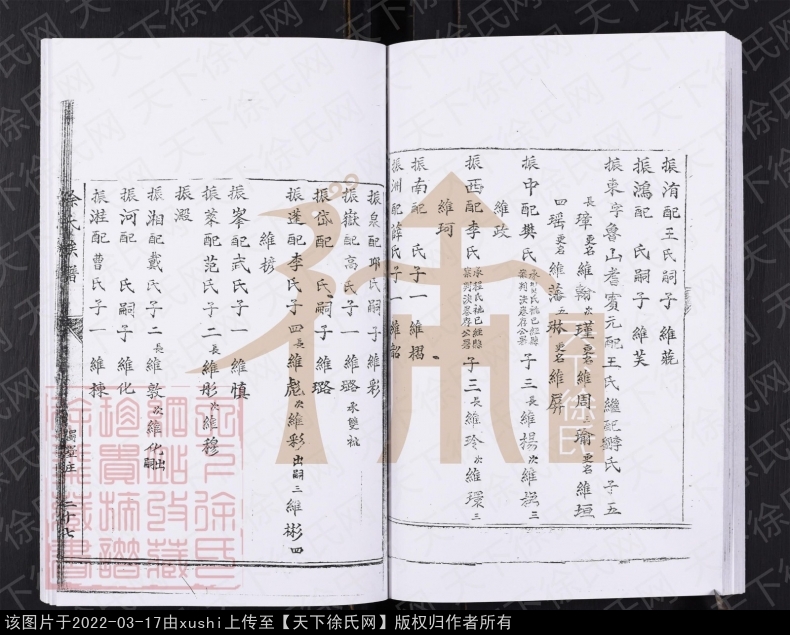 振洧配王氏嗣子 維蔬
振鴻配 氏嗣子 維芙
振東字魯山耆賓元配王氏繼配 氏子五
長璋更名維翰次瑾更名維周三瑜更名維垣
四瑶更名維藩五琳更名維屏
振中配樊氏 子三長維揚次維 三
維政
振西配李氏 子三長維玲次維環三
維珂
振南配 氏子一維褶
振洲配薛氏子一維韶
振泉配 氏嗣子維彩
振嶽配高氏子一維璐承雙祧
振岱配 氏嗣子維璐
振蓬配李氏子四長維彪次維彩出嗣三維彬四
維
振峯配武氏子一維慎
振萊配范氏子二長維彤次維穆
振澱
振湘配戴氏子二長維敦次維化出嗣
振河配 氏嗣子維化
振淮配曹氏子一維棟
徐氏族譜
二十七
天下徐氏
天下徐氏网
该图片于2022-03-17由xushi上传至【天下徐氏网】版权归作者所有